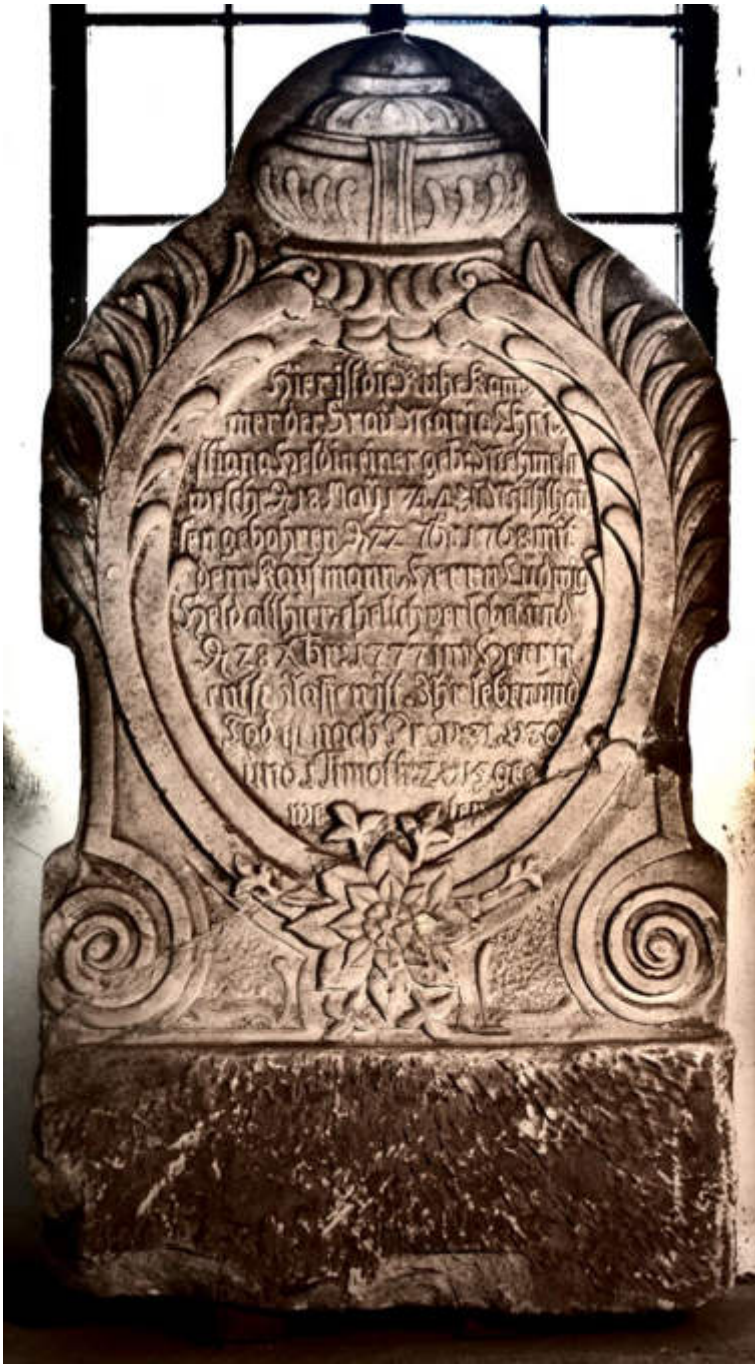 Hier ist die Ruhe Kam
mer der Frau Maria Chri
stiana Heldin einer geb.
welche d 18 May 1744 Mühlhau
sen gebohren d 22 7br. 1768 mit
dem Kaufmann Herrn Ludwig
Held allhier ehelich verlobet und
d 28 Xbr. 1777 im Herrn
entschlaffen ist. Ihr leben und
Tod ist nach Prov. 31. v. 30
und 1 Timoth. 2 v. 15 ge
we